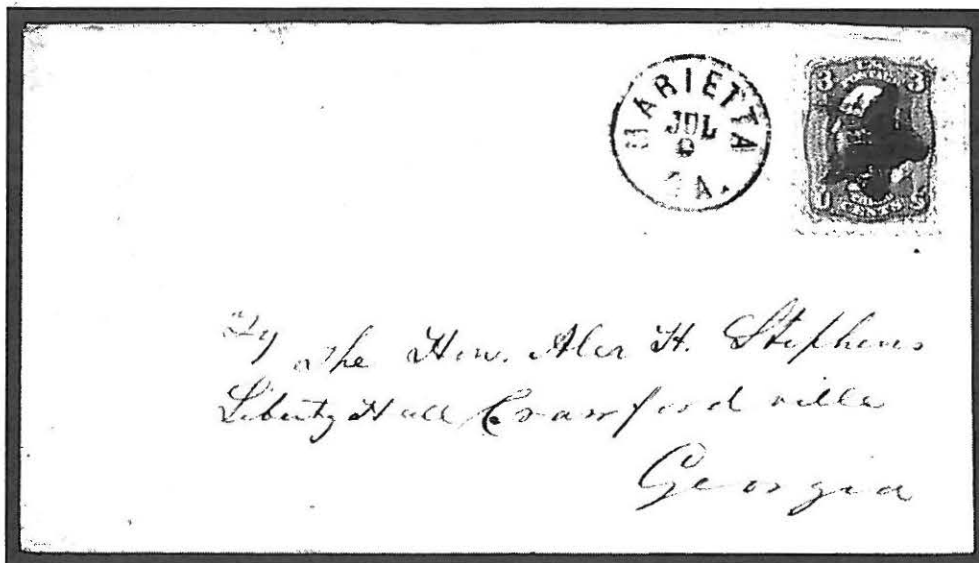 MARIETTA
JUL
9
GA.
3 3
U S
CENTS
The Hon. Alex H. Stephens
Liberty Hall Crawfordville
Georgia